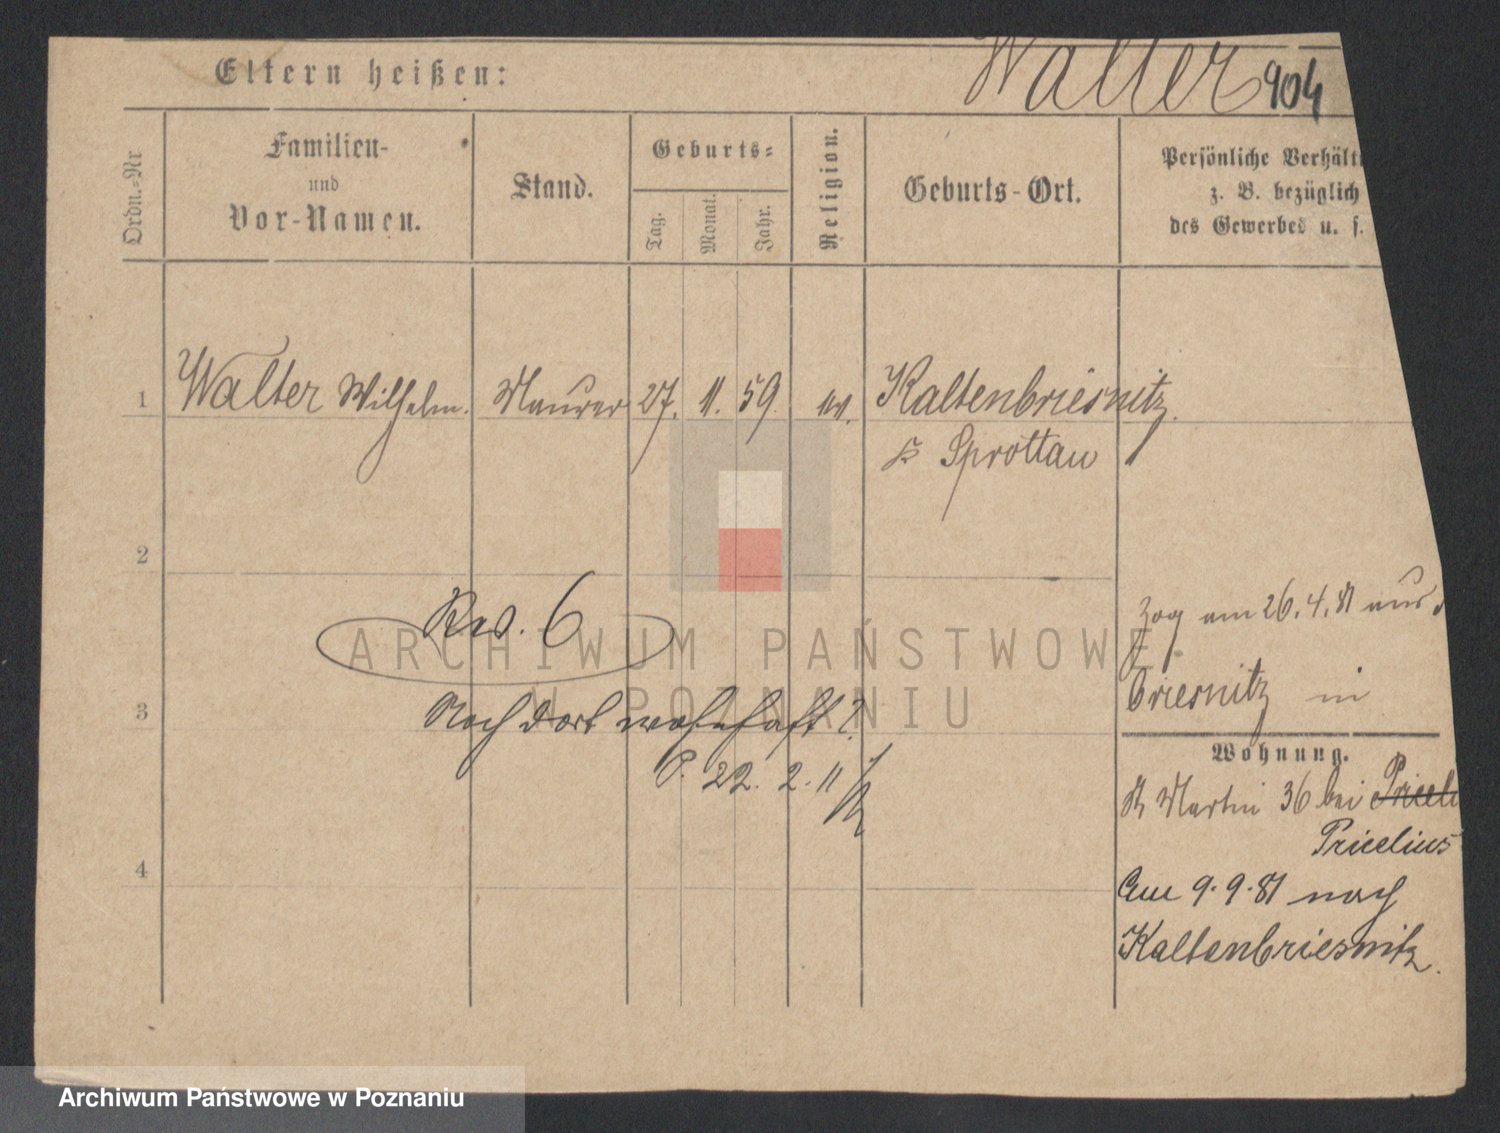 Eltern heißen:
Walter 904
Ordn.=Nr
Familien-
und
Vor-Namen.
Stand.
Geburts=
Tag.
Monat.
Jahr.
Religion.
Geburts-Ort.
Persönliche Verhält
z. B. bezüglich
des Gewerbes u. s.
1 Walter Wilhelm. Maurer 27. 11. 59. ev. Kaltenbriesnitz.
Sprottau
2
Rev. 6
zog am 26.4.81 aus
ARCHIWUM PAŃSTWOWE
W POZNANIU
Briesnitz in
3
Noch dort wohnhaft?
P. 22. 2. 11
Wohnung.
St Martin 36 bei
Pricelius
4
Am 9.9.81 nach
Kaltenbriesnitz.
Archiwum Państwowe w Poznaniu